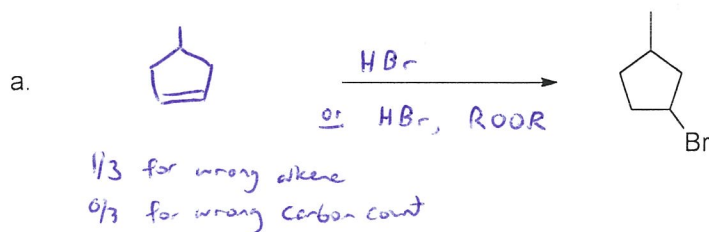 a.
HBr
or HBr, ROOR
Br
1/3 for wrong alkene
0/3 for wrong carbon count